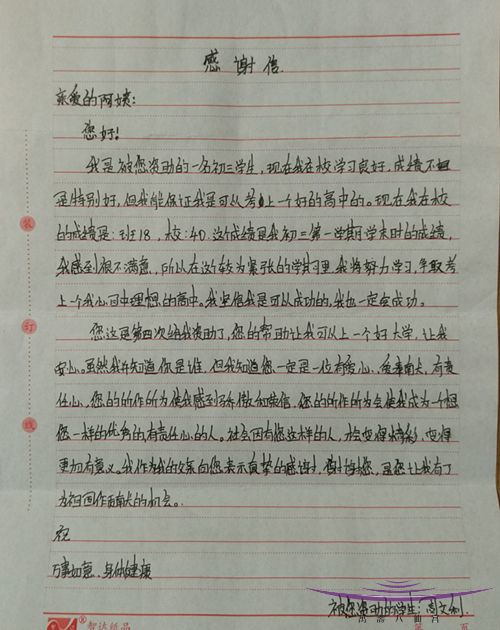 感谢信.
亲爱的阿姨:
您好!
我是被您资助的一名初三学生,现在我在校学习良好,成绩不
是特别好,但我能保证我是可以考上一个好的高中的。现在我在校
的成绩是:班18,校:40.这个成绩是我初三第一学期期末时的成绩,
我感到很不满意,所以在这个较为紧张的学期里,我将努力学习,争取考
上一个我心目中理想的高中。我坚信我是可以成功的,我也一定会成功。
您这是第四次给我资助了,您的帮助让我可以上一个好大学,让我
安心。虽然我并知道你是谁,但我知道您一定是一位有爱心,有责
任心,您的的所作所为使我感到骄傲和荣信,您的所作所为会使我成为一个想
您一样的优秀的有责任心的人。社会因有您这样的人,才会变得精彩,变得
更加有意义。我作为我的父亲向您表示真挚的感谢,谢谢您,是您让我有了
为祖国作贡献的机会。
祝
万事如意,身体健康
被您资助的学生:
装
订
线
智达纸品
第 页